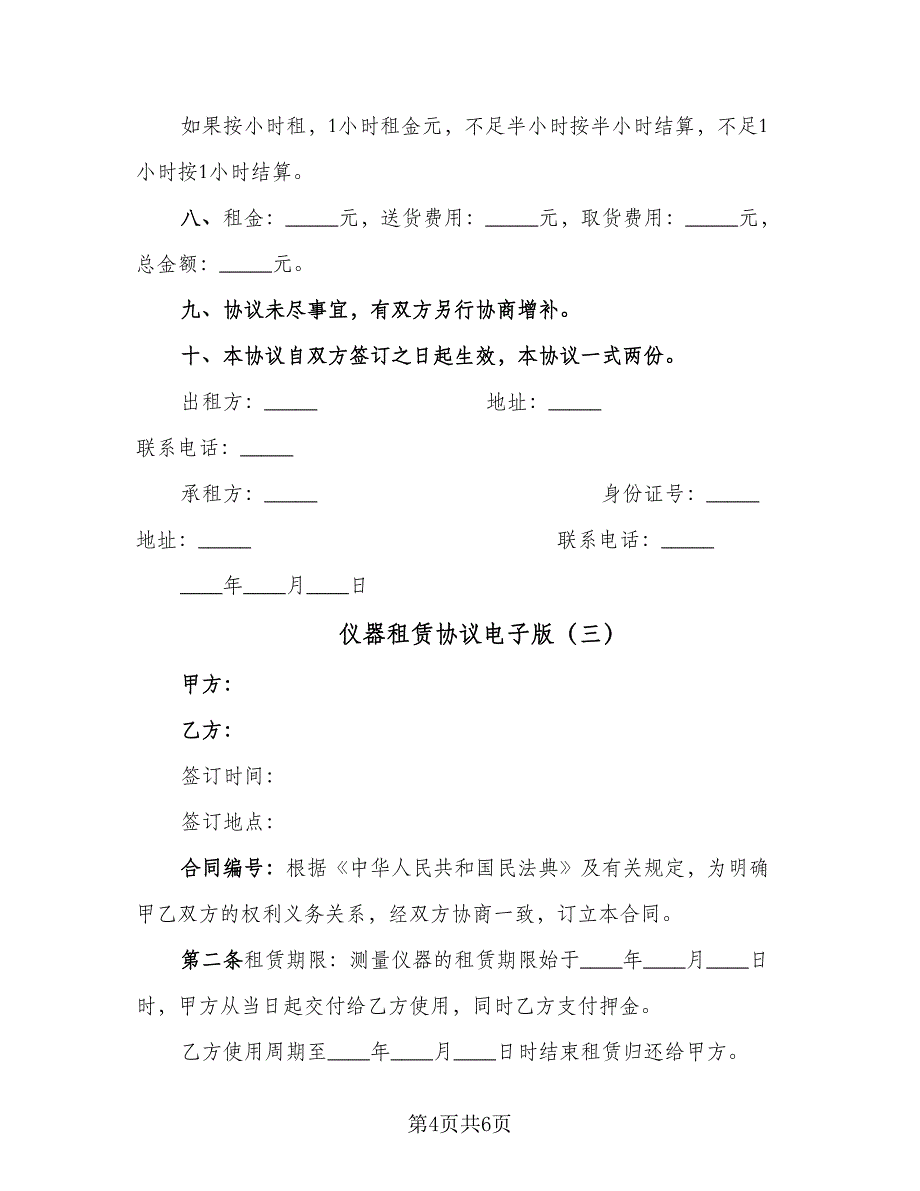 如果按小时租，1小时租金元，不足半小时按半小时结算，不足1
小时按1小时结算。
八、租金：_____元，送货费用：_____元，取货费用：_____元，
总金额：_____元。
九、协议未尽事宜，有双方另行协商增补。
十、本协议自双方签订之日起生效，本协议一式两份。
出租方：_____ 地址：_____
联系电话：_____
承租方：_____ 身份证号：_____
地址：_____ 联系电话：_____
____年____月____日
仪器租赁协议电子版（三）
甲方：
乙方：
签订时间：
签订地点：
合同编号：根据《中华人民共和国民法典》及有关规定，为明确
甲乙双方的权利义务关系，经双方协商一致，订立本合同。
第二条租赁期限：测量仪器的租赁期限始于____年____月____日
时，甲方从当日起交付给乙方使用，同时乙方支付押金。
乙方使用周期至____年____月____日时结束租赁归还给甲方。
第4页共6页